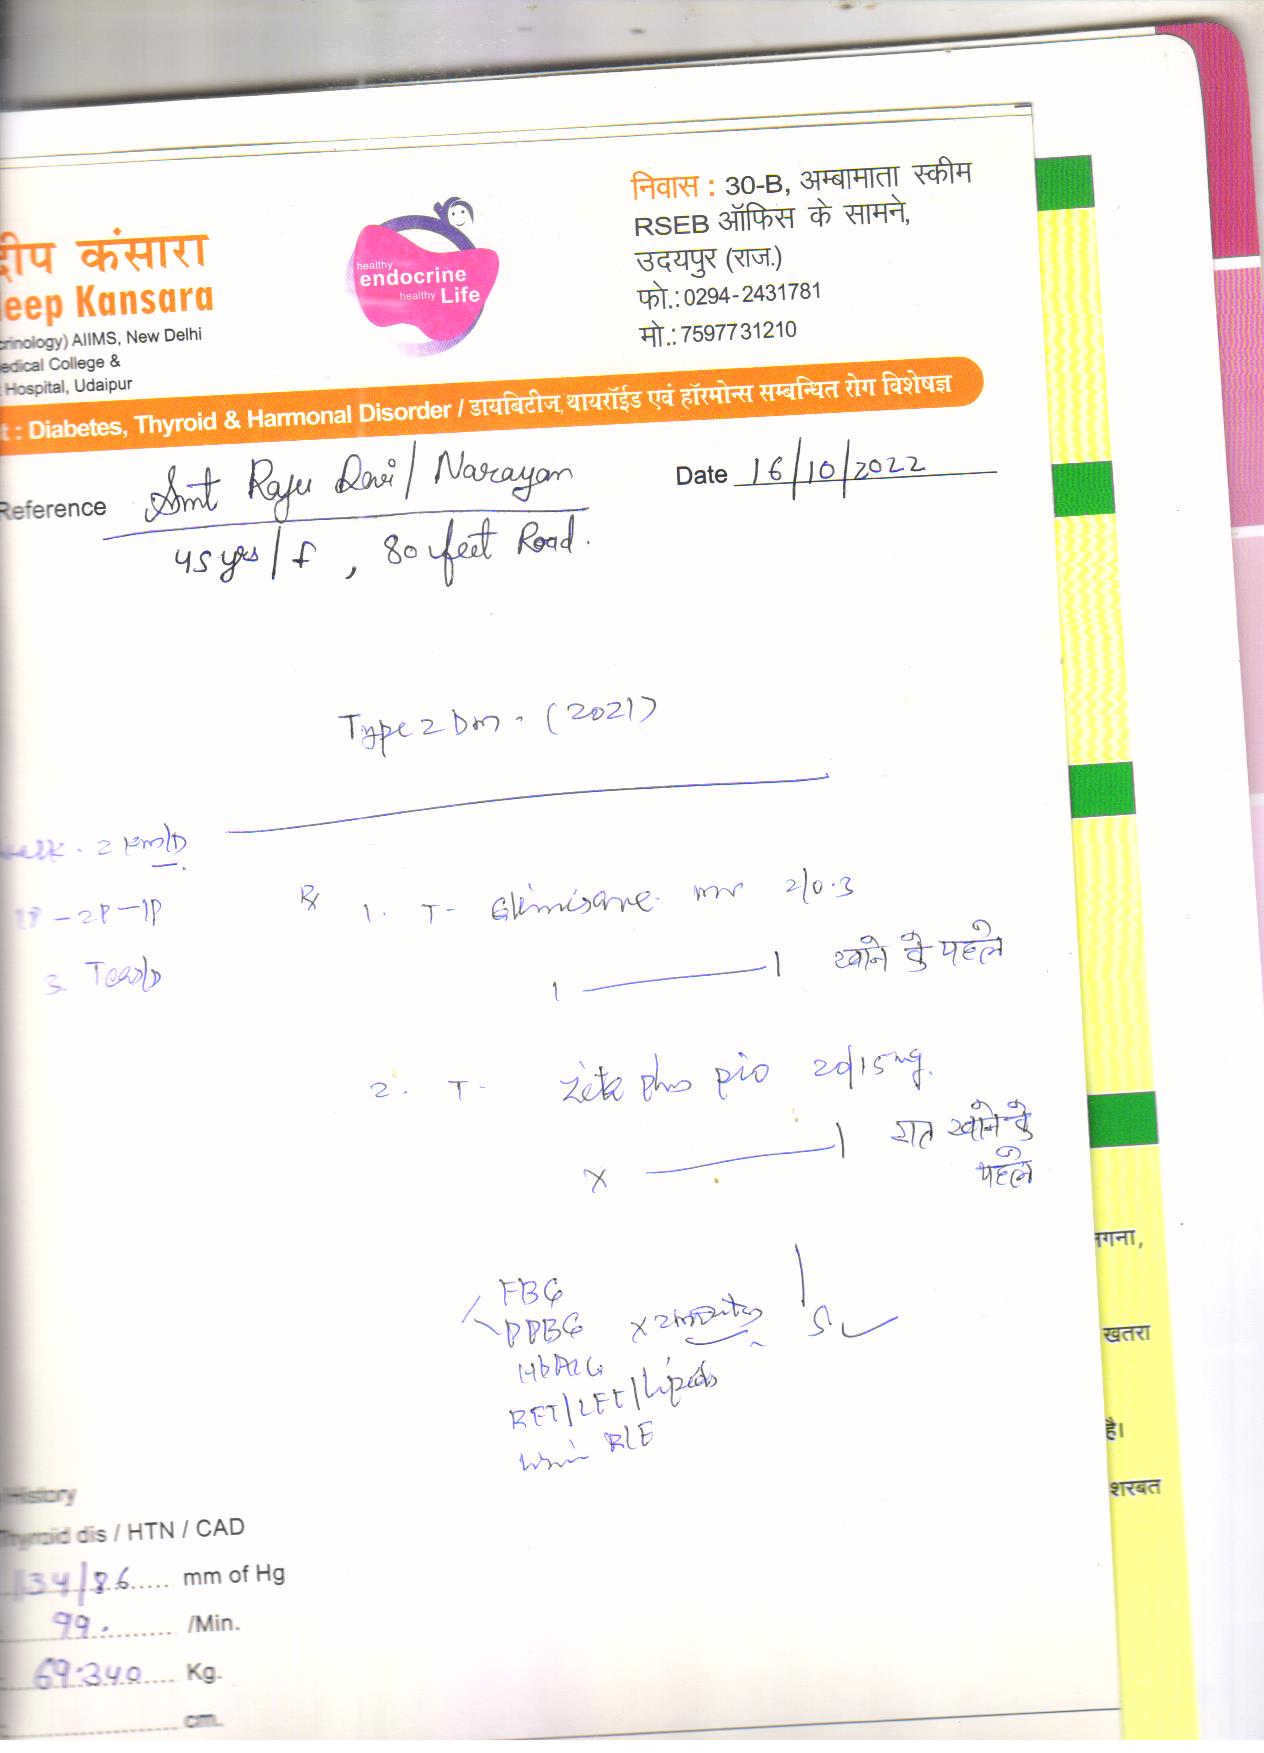 दीप कंसारा
eep Kansara
crinology) AIIMS, New Delhi
edical College &
Hospital, Udaipur
healthy
endocrine
healthy Life
निवास : 30-B, अम्बामाता स्कीम
RSEB ऑफिस के सामने,
उदयपुर (राज.)
फो.:0294-2431781
मो.:7597731210
t : Diabetes, Thyroid & Harmonal Disorder / डायबिटीज, थायरॉईड एवं हॉरमोन्स सम्बन्धित रोग विशेषज्ञ
Reference Smt Raju Devi / Narayan
Date 16/10/2022
45 yrs / f , 80 feet Road.
Type 2 Dm - (2021)
walk - 2 km/D
1P - 2P - 1P
3 Tea/D
Rx 1. T- Glimisave mv 2/0.3
1 ——— 1 खाने के पहले
2. T- Zita plus pio 20/15mg.
x ——— 1 रात खाने के
पहले
FBG
PPBG x 2 months
HbA1c
RFT/LFT/Lipids
Urine R/E
History
Thyroid dis / HTN / CAD
134/86 mm of Hg
99. /Min.
69.340 Kg.
cm.
गना,
खतरा
है।
शरबत